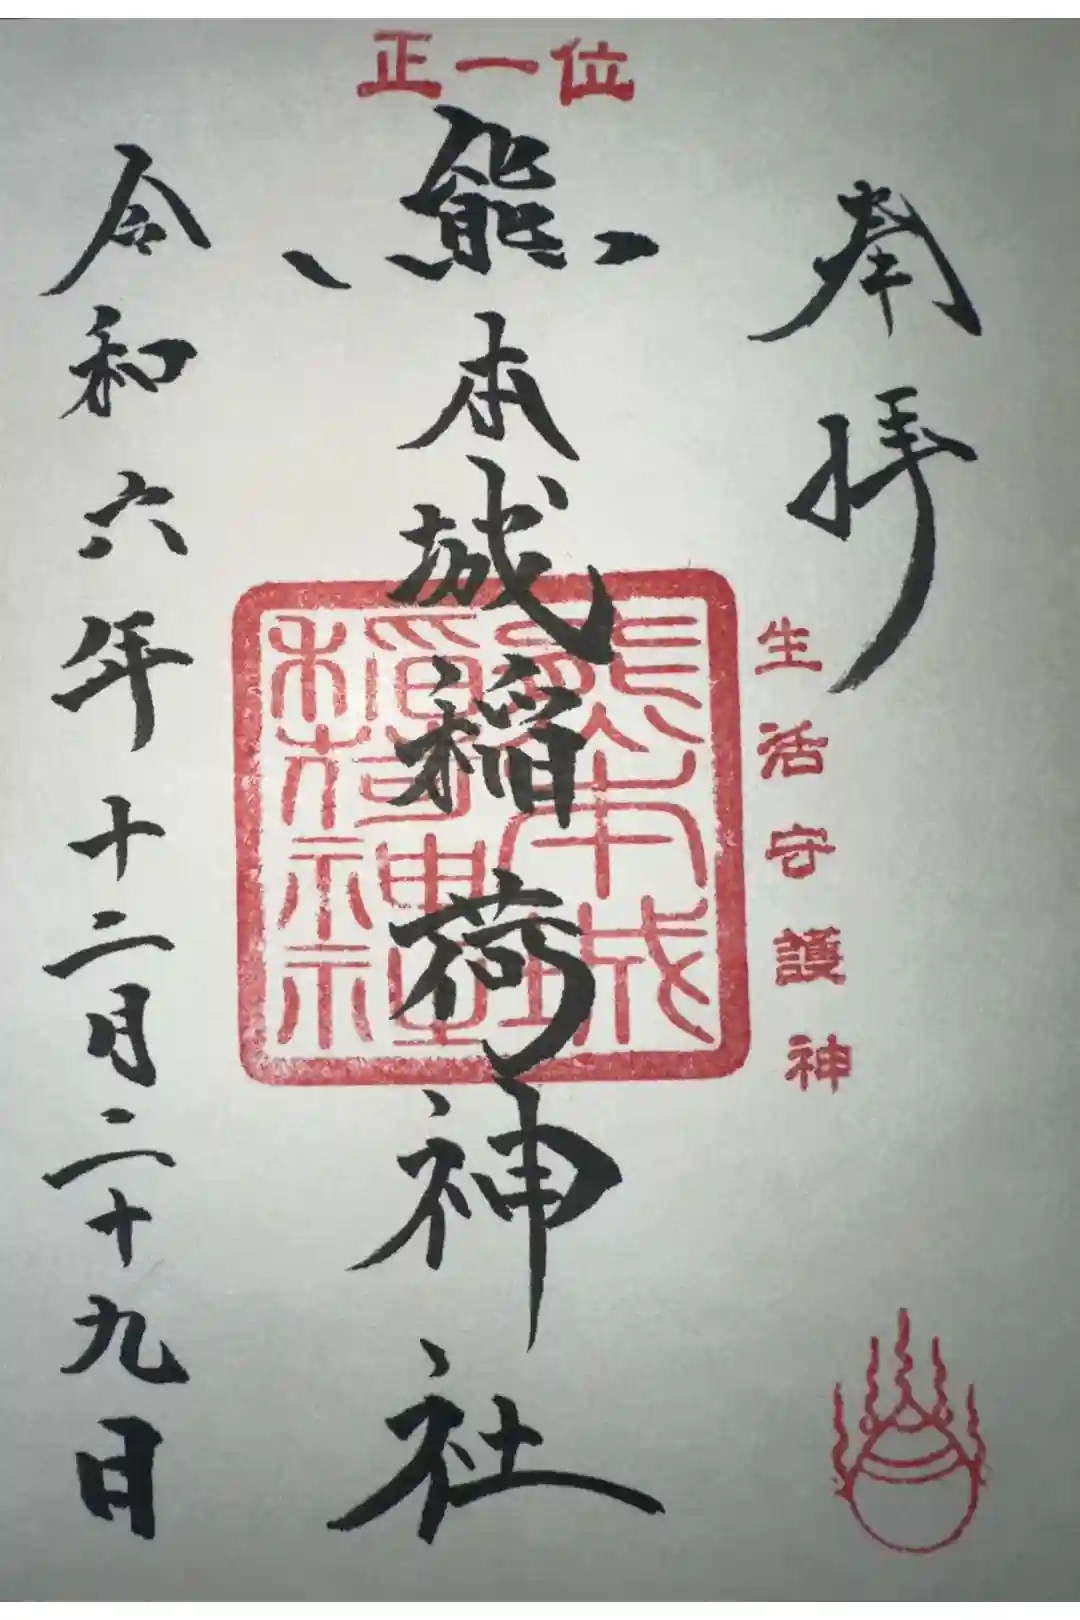 正一位
奉拝
生活守護神
熊本城稲荷神社
熊本城
稲荷神社
令和六年十二月二十九日